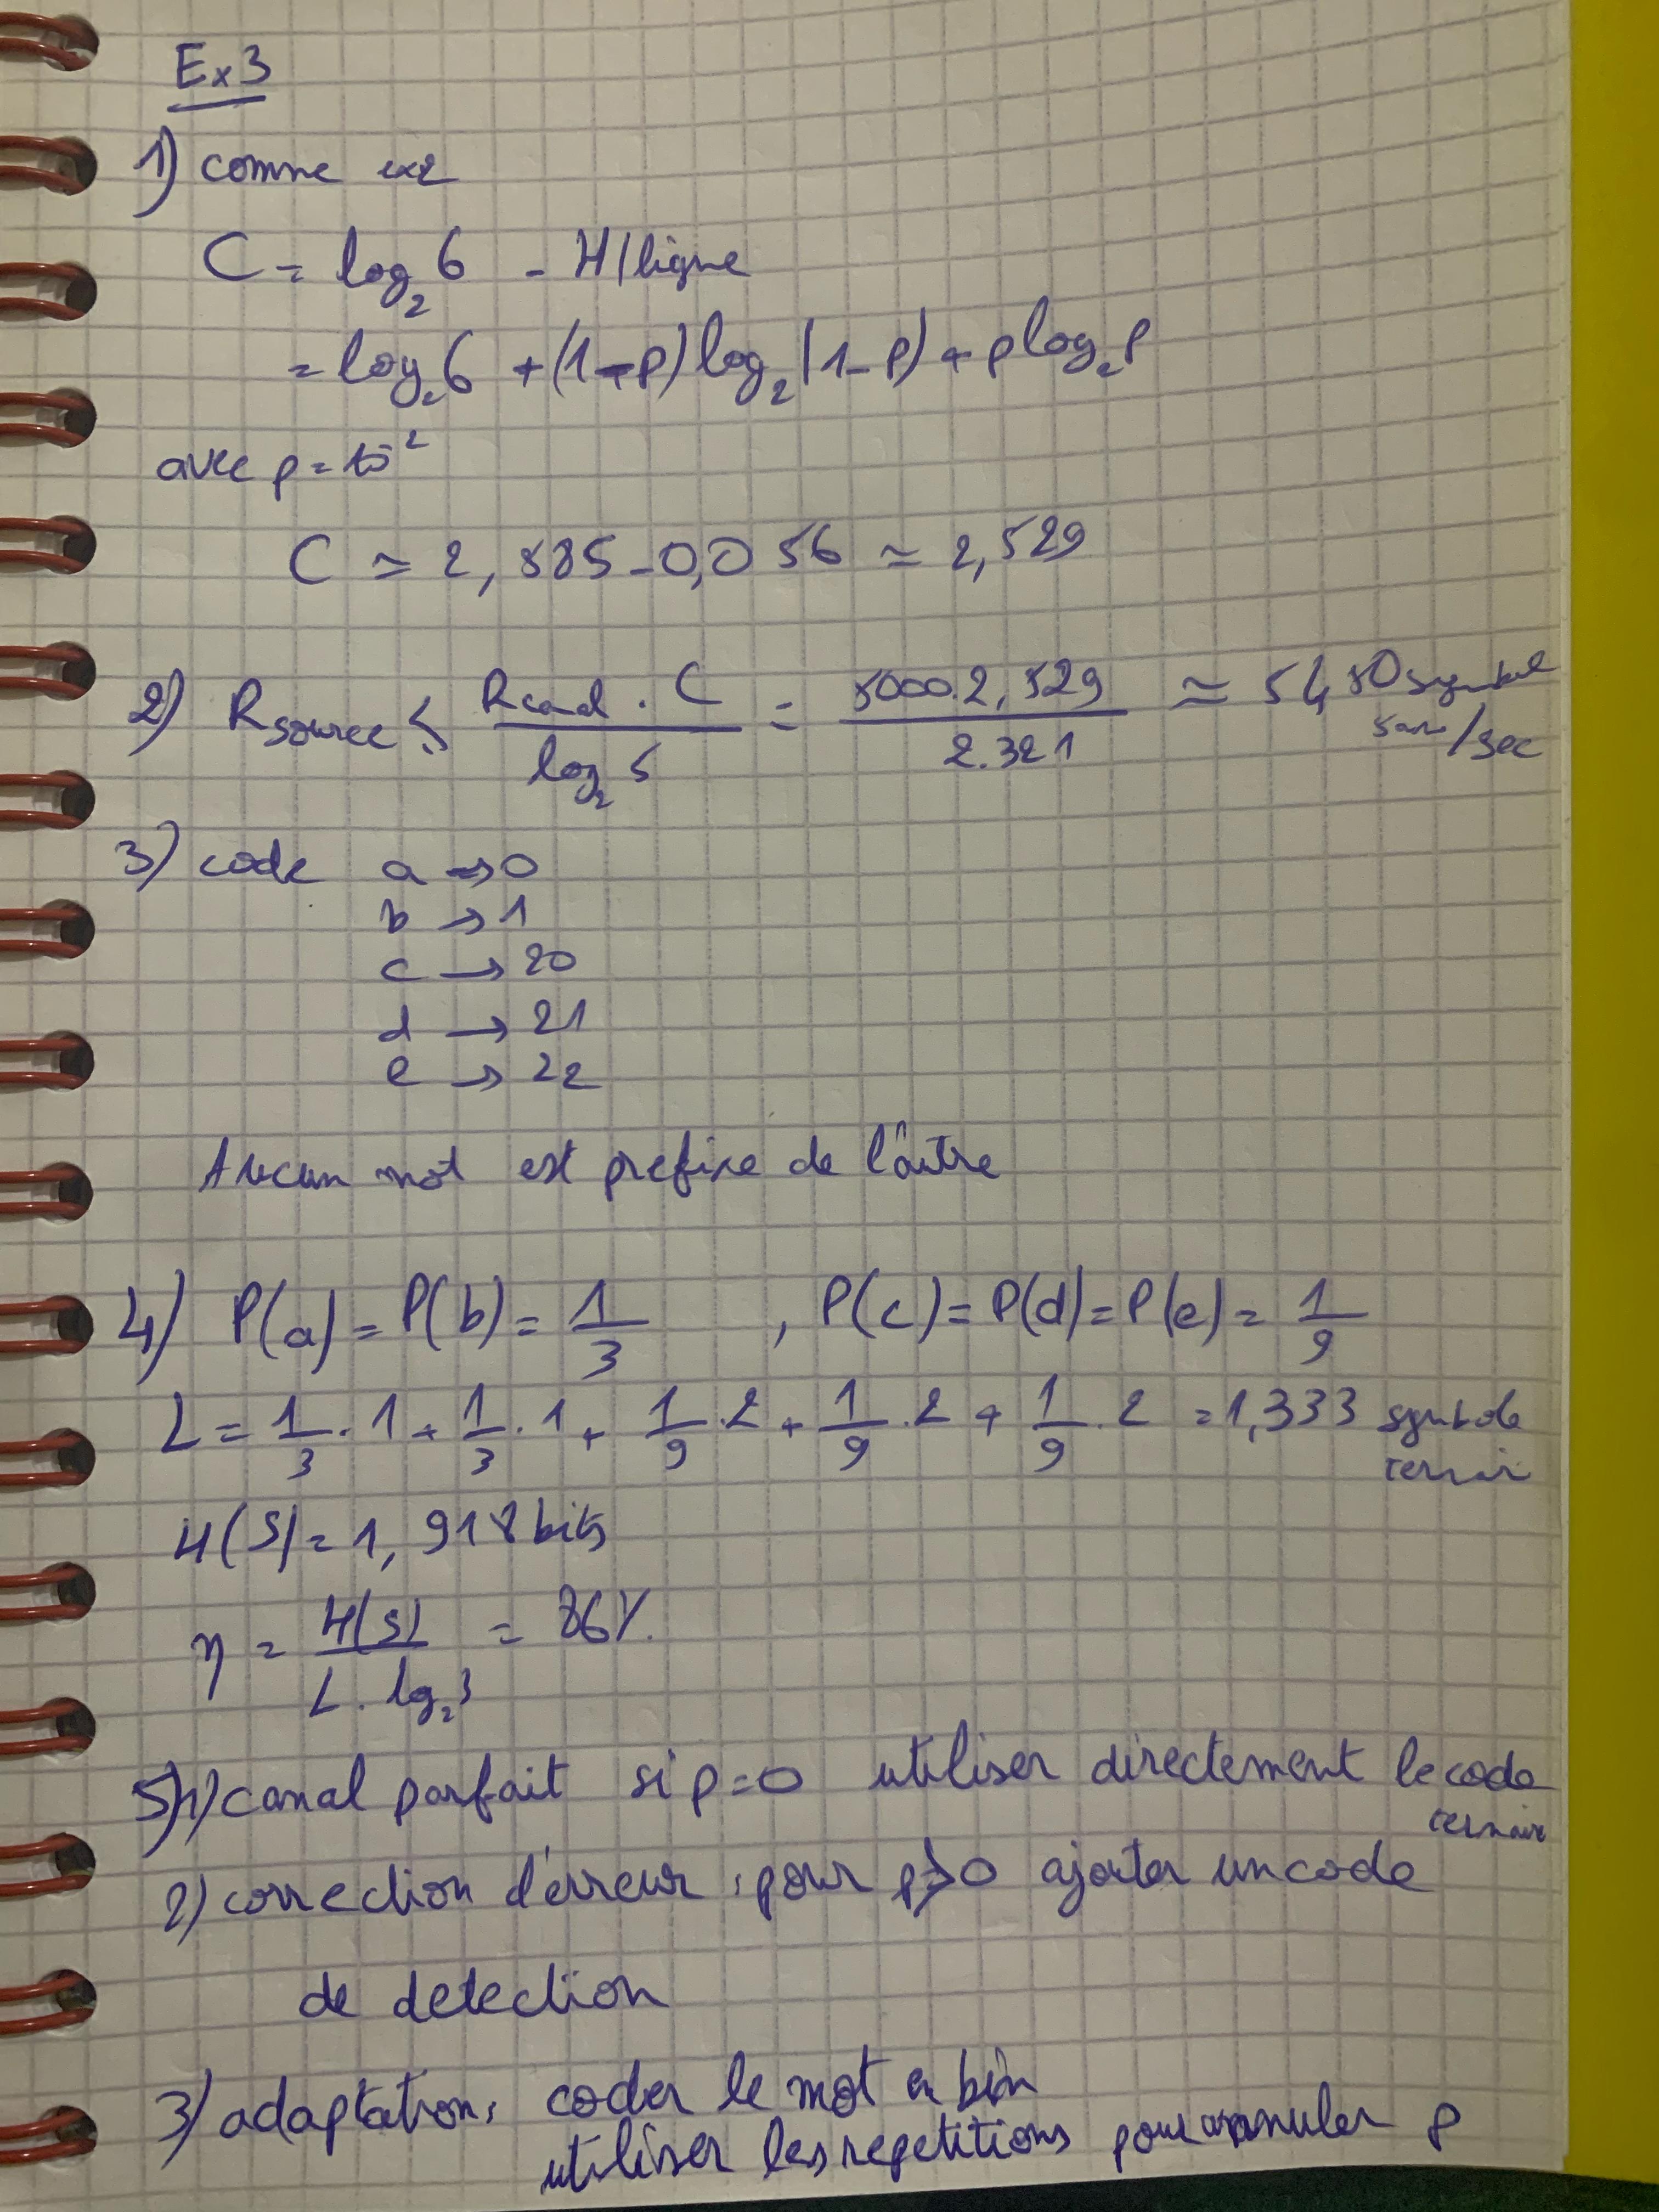 Ex3
1) comme ex2
C = log₂6 - H/ligne
= log₂6 + (1-p)log₂(1-p) + plog₂p
avec p = 10⁻²
C ≃ 2,585-0,056 ≃ 2,529
2) Rsource ≤ Rcanal . C / log₂5 = 5000.2,529 / 2.321 ≃ 5450 symbole /sec
3) code a → 0
b → 1
c → 20
d → 21
e → 22
Aucun mot est prefixe de l'autre
4) P(a) = P(b) = 1/3 , P(c) = P(d) = P(e) = 1/9
L = 1/3 . 1 + 1/3 . 1 + 1/9 . 2 + 1/9 . 2 + 1/9 . 2 = 1,333 symbole
ternair
H(S) = 1,918 bits
η = H(S) / L . lg₂3 = 86%
5) 1) canal parfait si p=0 utiliser directement le code
ternaire
2) correction d'erreur : pour p>0 ajouter un code
de detection
3) adaptation: coder le mot en bin
utiliser les repetitions pour annuler p